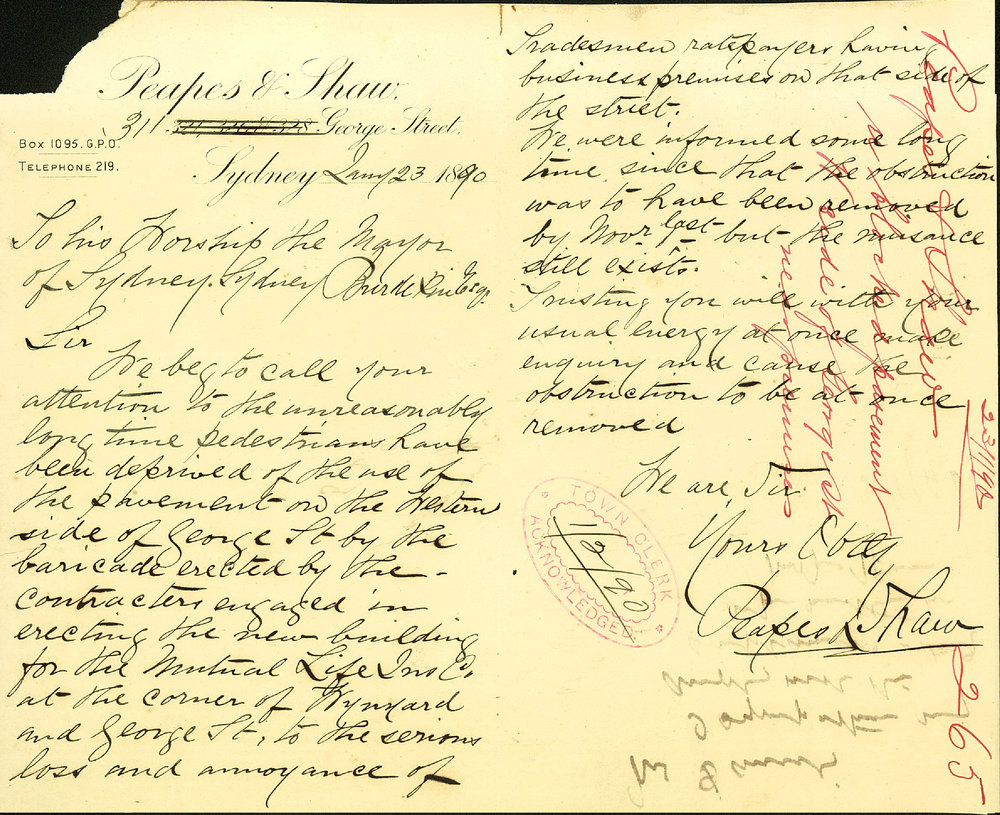 Peapes & Shaw.
311 George Street.
Box 1095. G.P.O.
Telephone 219.
Sydney Jany 23 1890
To his Worship the Mayor
of Sydney. Sydney Burdekin Esq.
Sir
We beg to call your
attention to the unreasonably
long time pedestrians have
been deprived of the use of
the pavement on the Western
side of George St by the
baricade erected by the
contracters engaged in
erecting the new building
for the Mutual Life Ins Co,
at the corner of Wynyard
and George St, to the serious
loss and annoyance of
Tradesmen ratepayers having
business premises on that side of
the street.
We were informed some long
time since that the obstruction
was to have been removed
by Novr last but the nuisance
still exists.
Trusting you will with your
usual energy at once make
enquiry and cause the
obstruction to be at once
removed
We are, Sir
Yours Obtly
Peapes & Shaw
TOWN CLERK
1/2/90
ACKNOWLEDGED
Peapes & Shaw
re blocked pavement
W side of George St
new premises
23/1/90
265